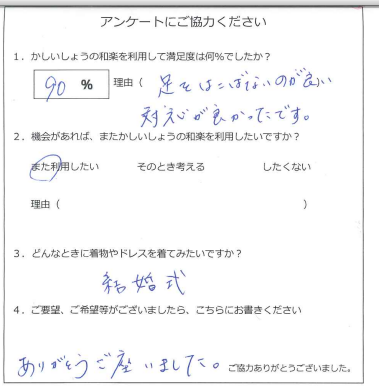 アンケートにご協力ください
1．かしいしょうの和楽を利用して満足度は何%でしたか？
90 % 理由（ 足をはこばないのが良い
対応が良かったです。
2．機会があれば、またかしいしょうの和楽を利用したいですか？
また利用したい そのとき考える したくない
理由（ ）
3．どんなときに着物やドレスを着てみたいですか？
結婚式
4．ご要望、ご希望等がございましたら、こちらにお書きください
ありがとうご座いました。 ご協力ありがとうございました。